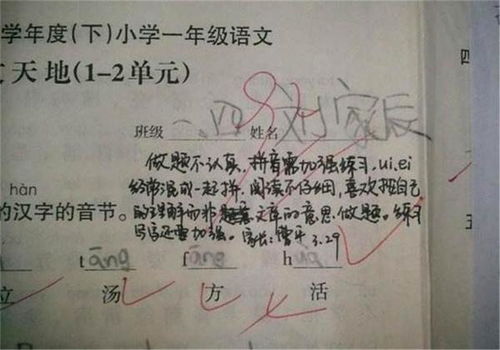 学年度(下)小学一年级语文
天地(1-2单元)
班级 一.四 姓名 刘家辰
做题不认真,拼音需加强练习,ui、ei
经常混成一起拼,阅读不仔细,喜欢按自己
的理解而非题文章的意思做题。练习
书写还需加强。 家长:曹平 3.29
hàn
的汉字的音节。
tāng fāng h
立 汤 方 活
四
五